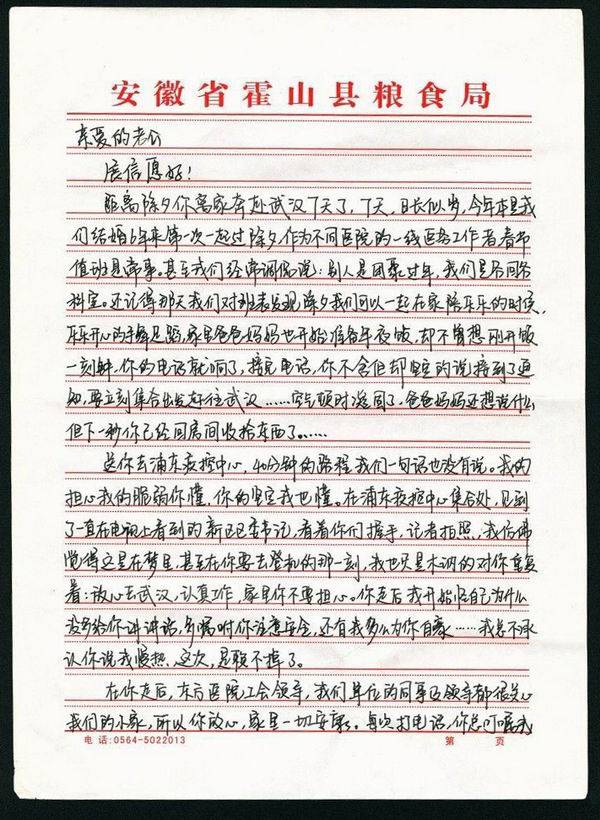 安徽省霍山县粮食局
亲爱的老公
展信愿好！
距离除夕你离家奔赴武汉7天了，7天，日长似岁，今年本是我
们结婚6年来第一次一起过除夕作为不同医院的一线医务工作者春节
值班是常事。甚至我们经常调侃说：别人是团聚过年，我们是各回各
科室。还记得那天我们对班表发现除夕我们可以一起在家陪乐乐的时候，
乐乐开心的手舞足蹈，家里爸爸妈妈也开始准备年夜饭，却不曾想刚开饭
一刻钟，你的电话就响了，接完电话，你不舍但却坚定的说接到了通
知，要立刻集合出发赶往武汉……空气顿时凝固了，爸爸妈妈还想说什么
但下一秒你已经回房间收拾东西了……
送你去浦东疾控中心，40分钟的路程我们一句话也没有说。我的
担心我的脆弱你懂，你的坚定我也懂。在浦东疾控中心集合处，见到
了一直在电视上看到的新区书记，看着你们握手，记者拍照，我仿佛
觉得这是在梦里，甚至在你要去登机的那一刻，我也只是木讷的对你重复
着：放心去武汉，认真工作，家里你不要担心。你走后我开始怪自己为什么
没多给你讲讲话，多嘱咐你注意安全，还有我多么为你自豪……我总不承
认你说我慢热，这次，是赖不掉了。
在你走后，东方医院工会领导，我们单位的同事及领导都很关心
我们的小家，所以你放心，家里一切安康。每次打电话，你总叮嘱我
电 话:0564-5022013
第 页